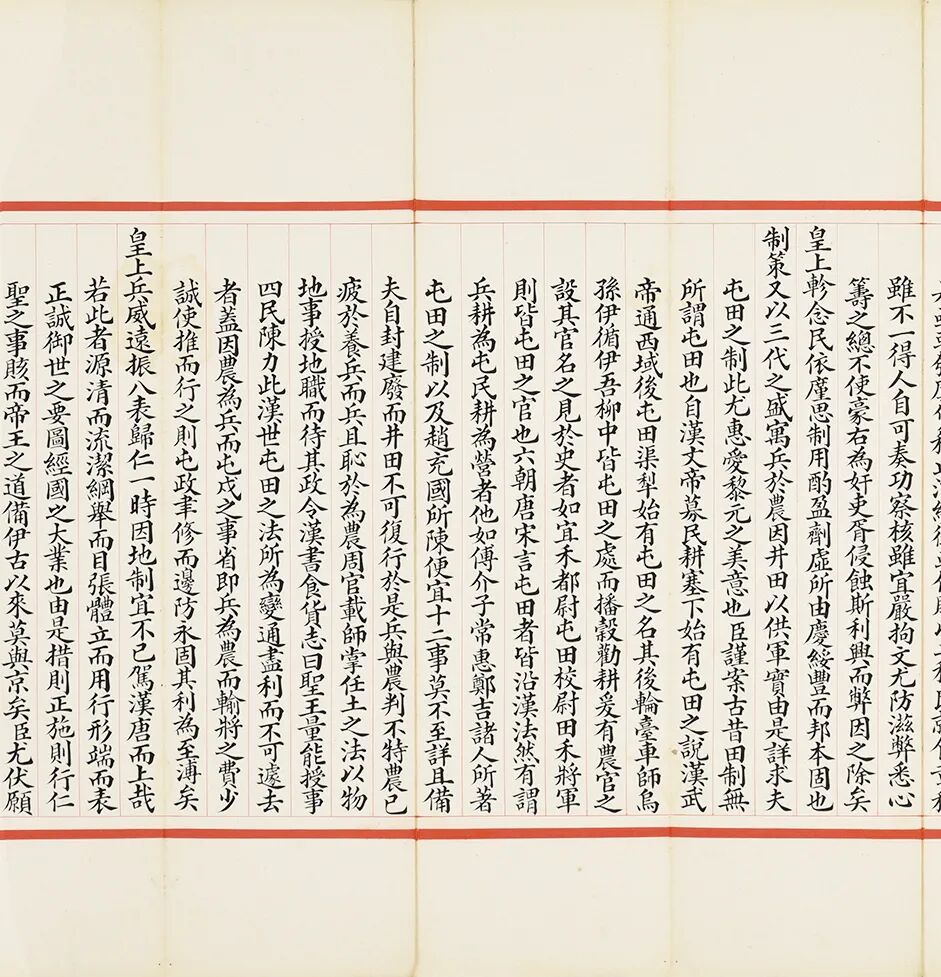 雖不一得人自可奏功察核雖宜嚴拘文尤防滋弊悉心
籌之總不使豪右為奸吏胥侵蝕斯利興而弊因之除矣
皇上軫念民依廑思制用酌盈劑虛所由慶綏豐而邦本固也
制策又以三代之盛寓兵於農因井田以供軍實由是詳求夫
屯田之制此尤惠愛黎元之美意也臣謹案古昔田制無
所謂屯田也自漢文帝募民耕塞下始有屯田之說漢武
帝通西域後屯田渠犁始有屯田之名其後輪臺車師烏
孫伊循伊吾柳中皆屯田之處而播穀勸耕爰有農官之
設其官名之見於史者如宜禾都尉屯田校尉田禾將軍
則皆屯田之官也六朝唐宋言屯田者皆沿漢法然有謂
兵耕為屯民耕為營者他如傅介子常惠鄭吉諸人所著
屯田之制以及趙充國所陳便宜十二事莫不至詳且備
夫自封建廢而井田不可復行於是兵與農判不特農已
疲於養兵而兵且恥於為農周官載師掌任土之法以物
地事授地職而待其政令漢書食貨志曰聖王量能授事
四民陳力此漢世屯田之法所為變通盡利而不可遽去
者蓋因農為兵而屯戍之事省即兵為農而輸將之費少
誠使推而行之則屯政聿修而邊防永固其利為至溥矣
皇上兵威遠振八表歸仁一時因地制宜不已駕漢唐而上哉
若此者源清而流潔綱舉而目張體立而用行形端而表
正誠御世之要圖經國之大業也由是措則正施則行仁
聖之事賅而帝王之道備伊古以來莫與京矣臣尤伏願